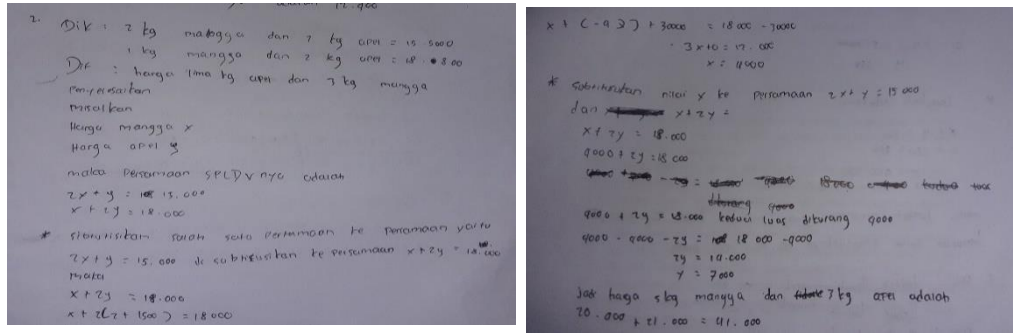 2. Dik : 2 kg mangga dan 1 kg apel = 15.5000
1 kg mangga dan 2 kg apel = 18.000
Dit : harga lima kg apel dan 3 kg mangga
Penyelesaian
misalkan
Harga mangga x
Harga apel y
maka Persamaan SPLDV nya adalah
2x + y = 15.000
x + 2y = 18.000
* salah satu Persamaan ke Persamaan yaitu
2x + y = 15.000 di subtitusikan ke persamaan x + 2y = 18.000
maka
x + 2y = 18.000
x + 2(2 + 1500) = 18000
x + (-4 ) + 30000 = 18000 - 30000
3x + 0 = 12.000
x = 4000
* Subtitusikan nilai x ke Persamaan 2x + y = 15000
dan x + 2y =
x + 2y = 18.000
4000 + 2y = 18000
4000 + 2y = 18.000 kedua luas dikurang 4000
4000 - 4000 - 2y = 18 000 - 4000
2y = 14.000
y = 7000
Jadi harga 5 kg mangga dan 3 kg apel adalah
20.000 + 21.000 = 41.000